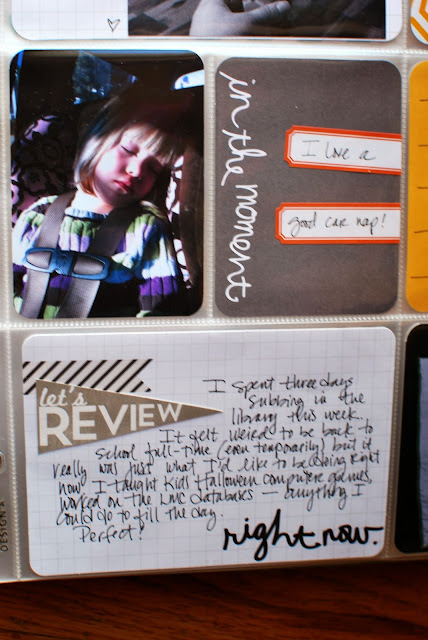 in the moment
I love a
good car nap!
let's
REVIEW
I spent three days
subbing in the
library this week.
It felt weird to be back to
school full-time (even temporarily) but it
really was just what I'd like to be doing right
now. I taught kids Halloween computer games,
worked on the LMC databases — anything I
could do to fill the day.
Perfect!
right now.
DESIGN A